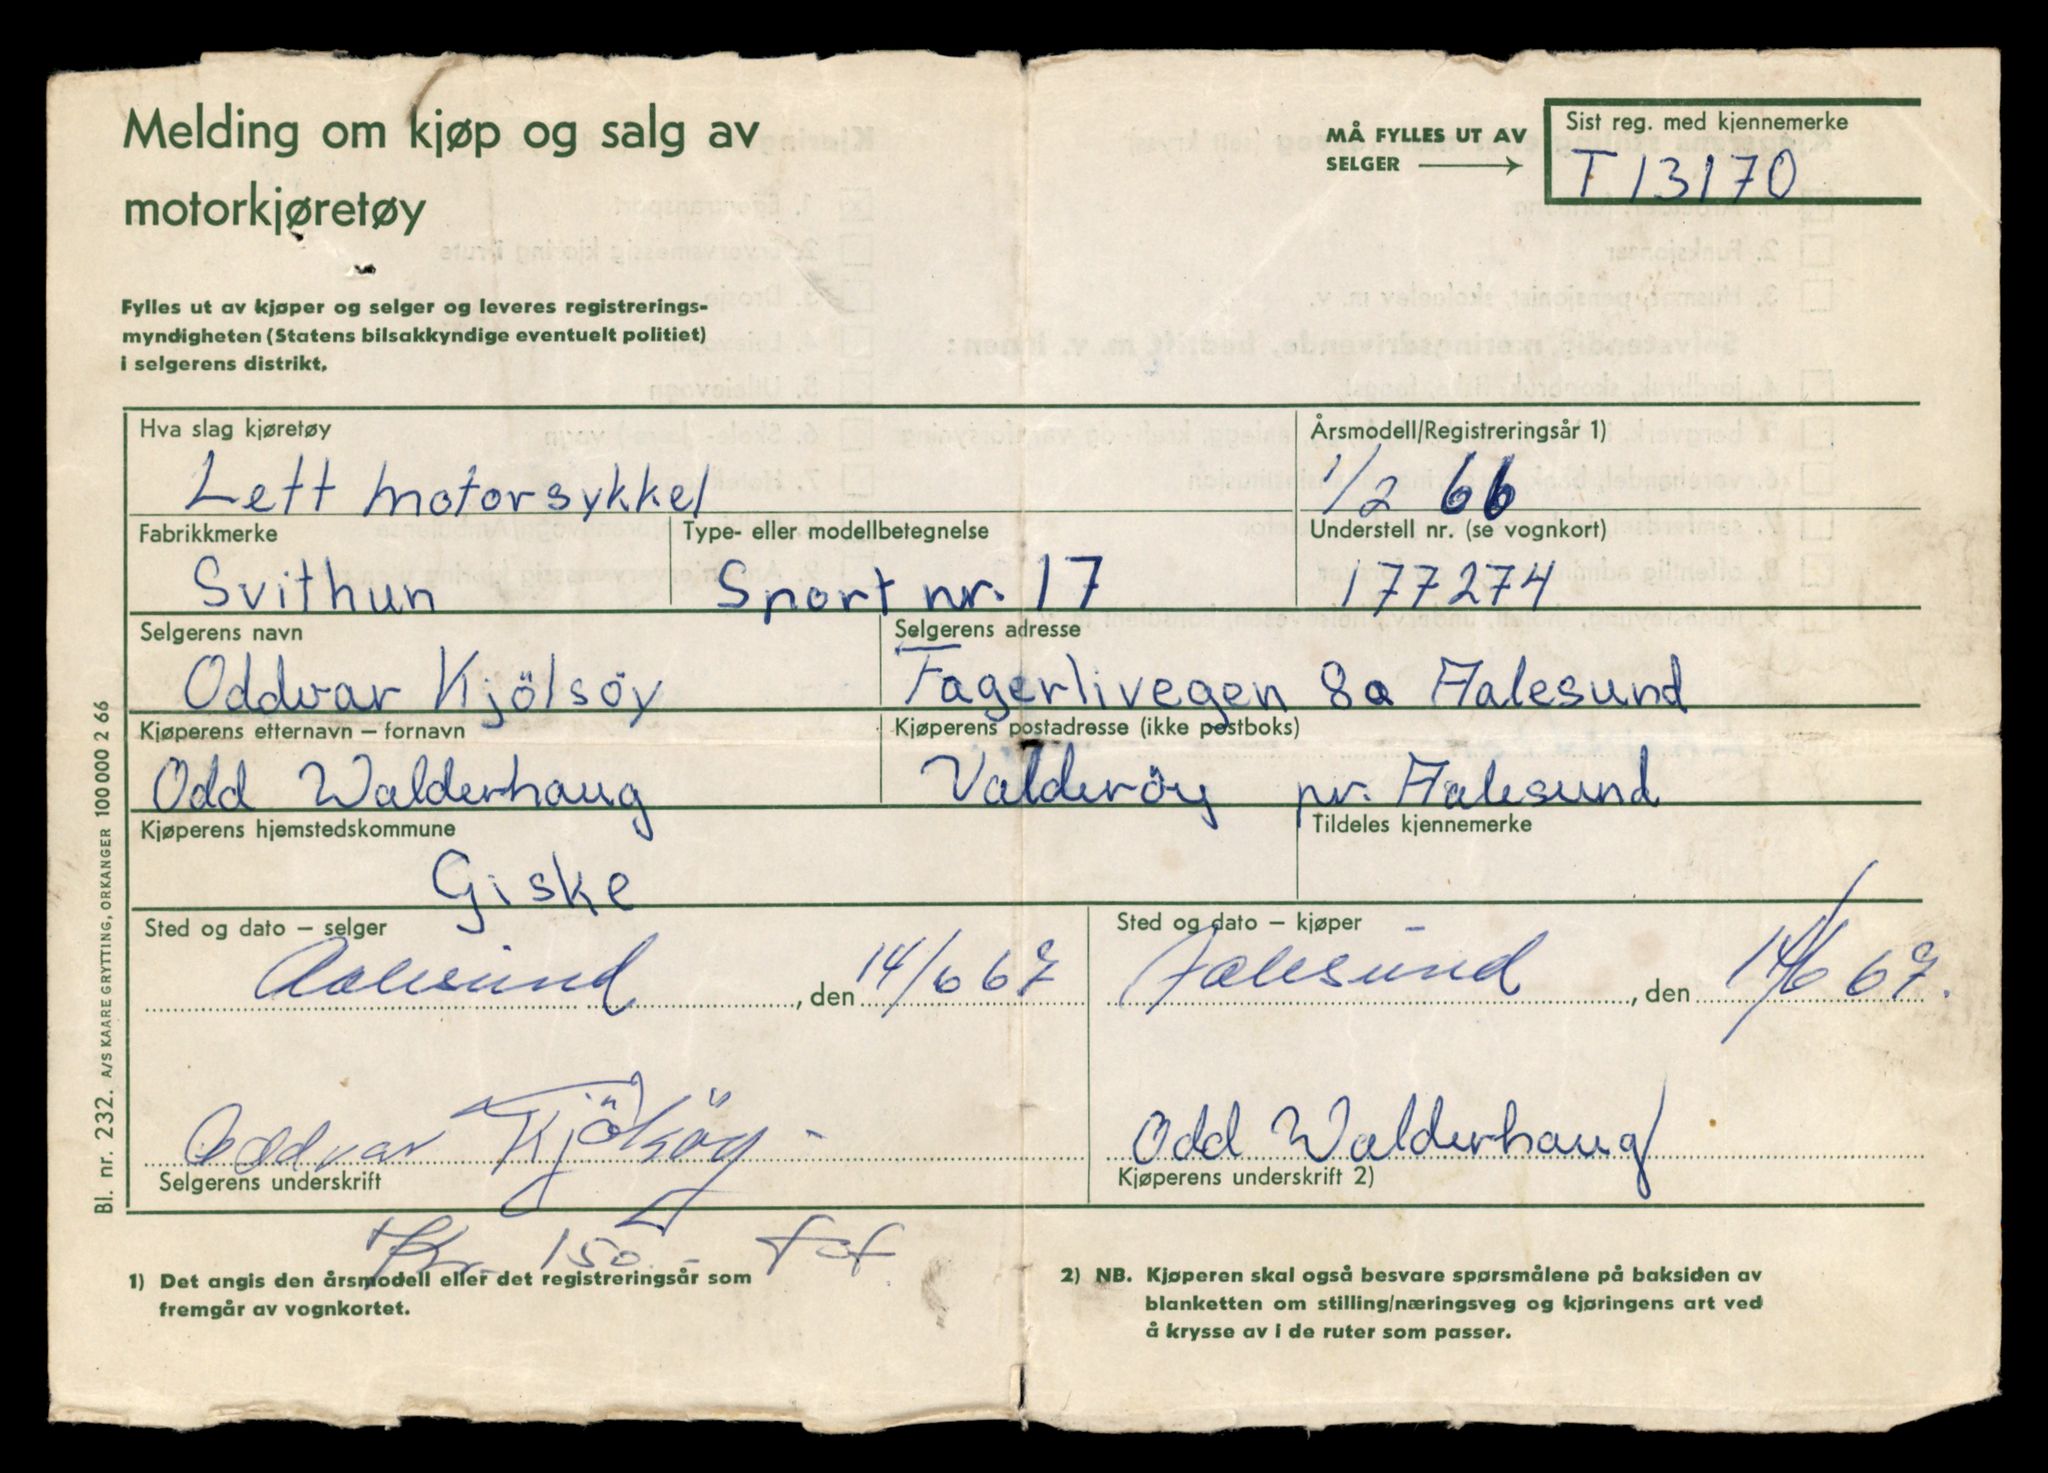 Melding om kjøp og salg av
motorkjøretøy
MÅ FYLLES UT AV
SELGER
Sist reg. med kjennemerke
T 13170
Fylles ut av kjøper og selger og leveres registrerings-
myndigheten (Statens bilsakkyndige eventuelt politiet)
i selgerens distrikt.
Hva slag kjøretøy
Årsmodell/Registreringsår 1)
Lett motorsykkel
1/2 66
Fabrikkmerke
Type- eller modellbetegnelse
Understell nr. (se vognkort)
Svithun
Sport nr. 17
177274
Selgerens navn
Selgerens adresse
Oddvar Kjölsöy
Fagerlivegen 8a Aalesund
Kjøperens etternavn – fornavn
Kjøperens postadresse (ikke postboks)
Odd Walderhaug
Valderöy pr. Aalesund
Kjøperens hjemstedskommune
Tildeles kjennemerke
Giske
Sted og dato – selger
Sted og dato – kjøper
Aalesund, den 14/6 67
Aalesund, den 14/6 67.
Oddvar Kjölsöy
Odd Walderhaug
Selgerens underskrift
Kjøperens underskrift 2)
Kr. 150.-
1) Det angis den årsmodell eller det registreringsår som
fremgår av vognkortet.
2) NB. Kjøperen skal også besvare spørsmålene på baksiden av
blanketten om stilling/næringsveg og kjøringens art ved
å krysse av i de ruter som passer.
Bl. nr. 232. A/S KAARE GRYTTING, ORKANGER 100 000 2 66